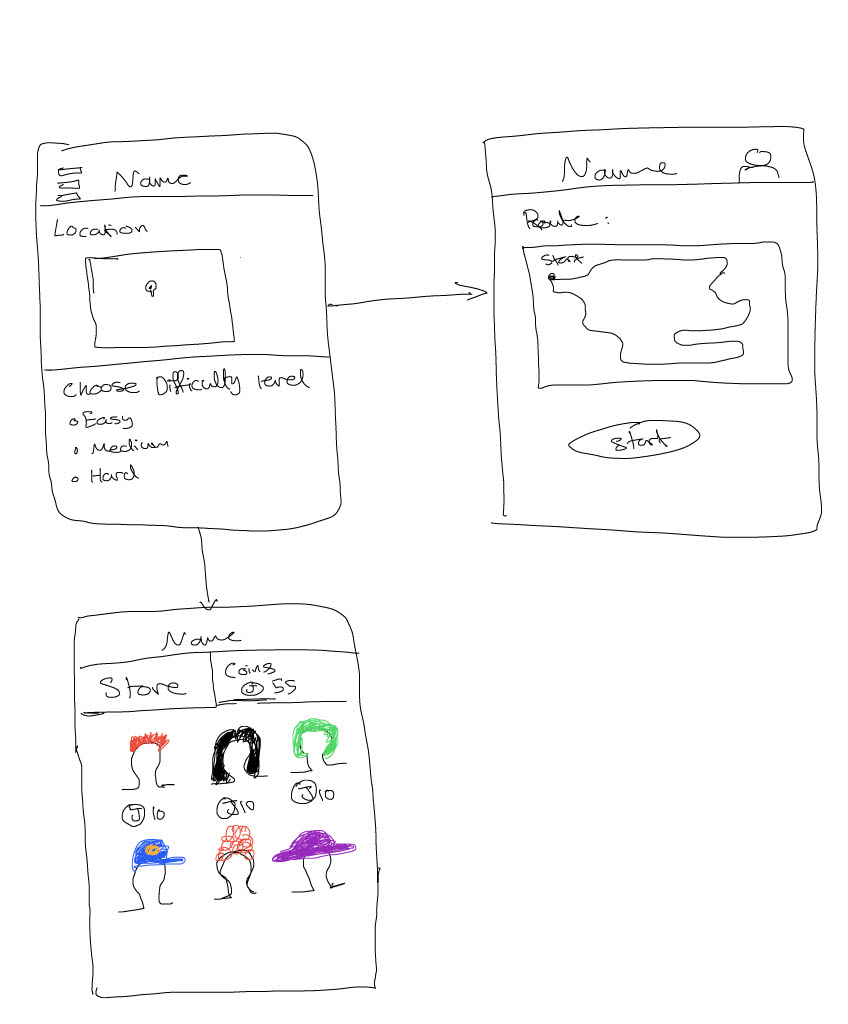 Name
Location
Choose Difficulty level
Easy
Medium
Hard
Name
Route:
Start
Start
Name
Store
Coins
J 55
J 10
J 10
J 10